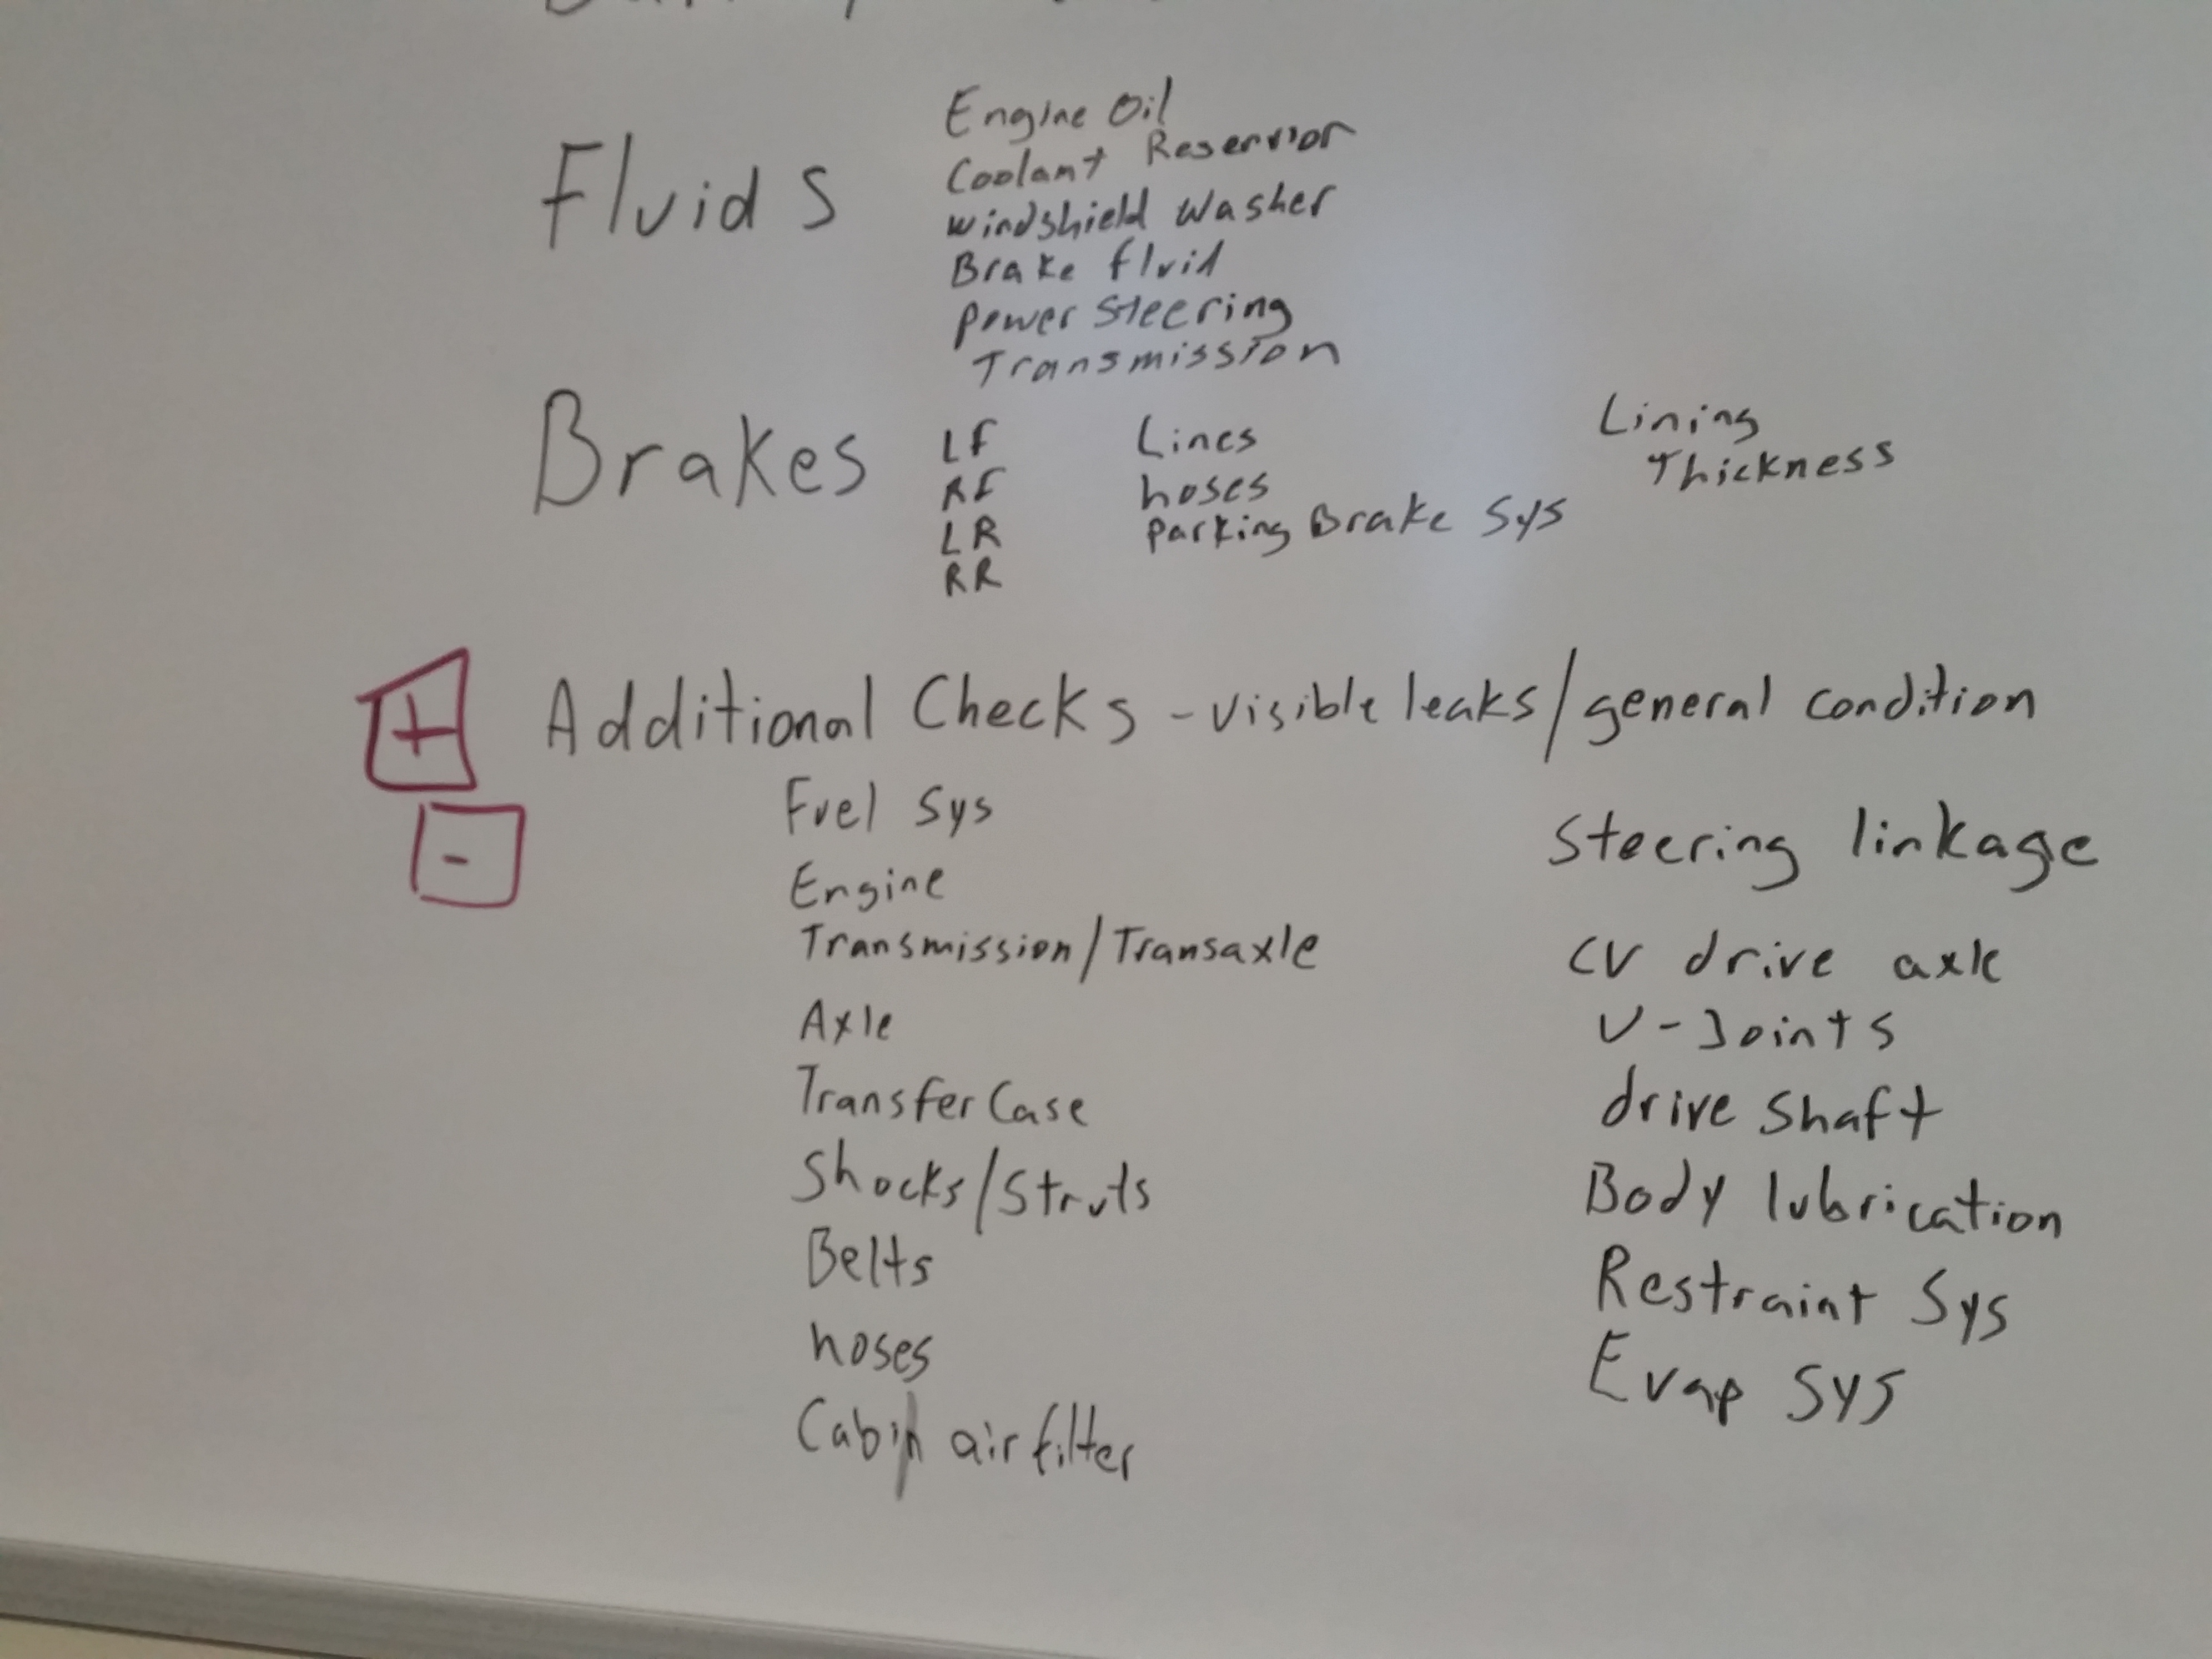 Fluids
Engine Oil
Coolant Reservior
Windshield Washer
Brake fluid
Power Steering
Transmission
Brakes
LF
RF
LR
RR
Lines
hoses
Parking Brake Sys
Lining
Thickness
+
-
Additional Checks - visible leaks/general condition
Fuel Sys
Engine
Transmission/Transaxle
Axle
Transfer Case
Shocks/Struts
Belts
hoses
Cabin air filter
Steering linkage
CV drive axle
U-Joints
drive shaft
Body lubrication
Restraint Sys
Evap Sys